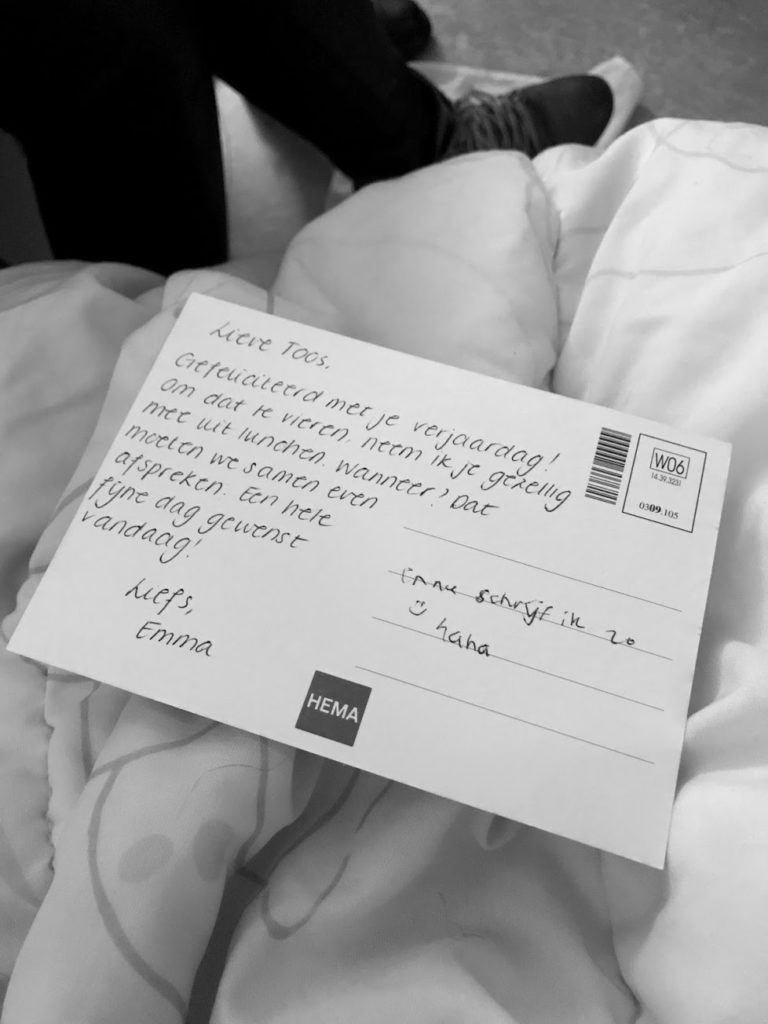 Lieve Toos,
Gefeliciteerd met je verjaardag!
Om dat te vieren, neem ik je gezellig
mee uit lunchen. Wanneer? Dat
moeten we samen even
afspreken. Een hele
fijne dag gewenst
vandaag!
Liefs,
Emma
W06
14.39.3231
0309.105
schrijf ik zo
☺ haha
HEMA